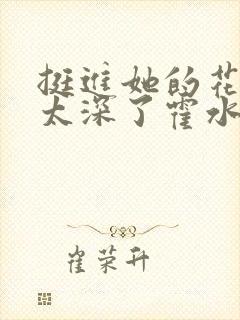 挺进她的花
太深了霍水
崔荣升